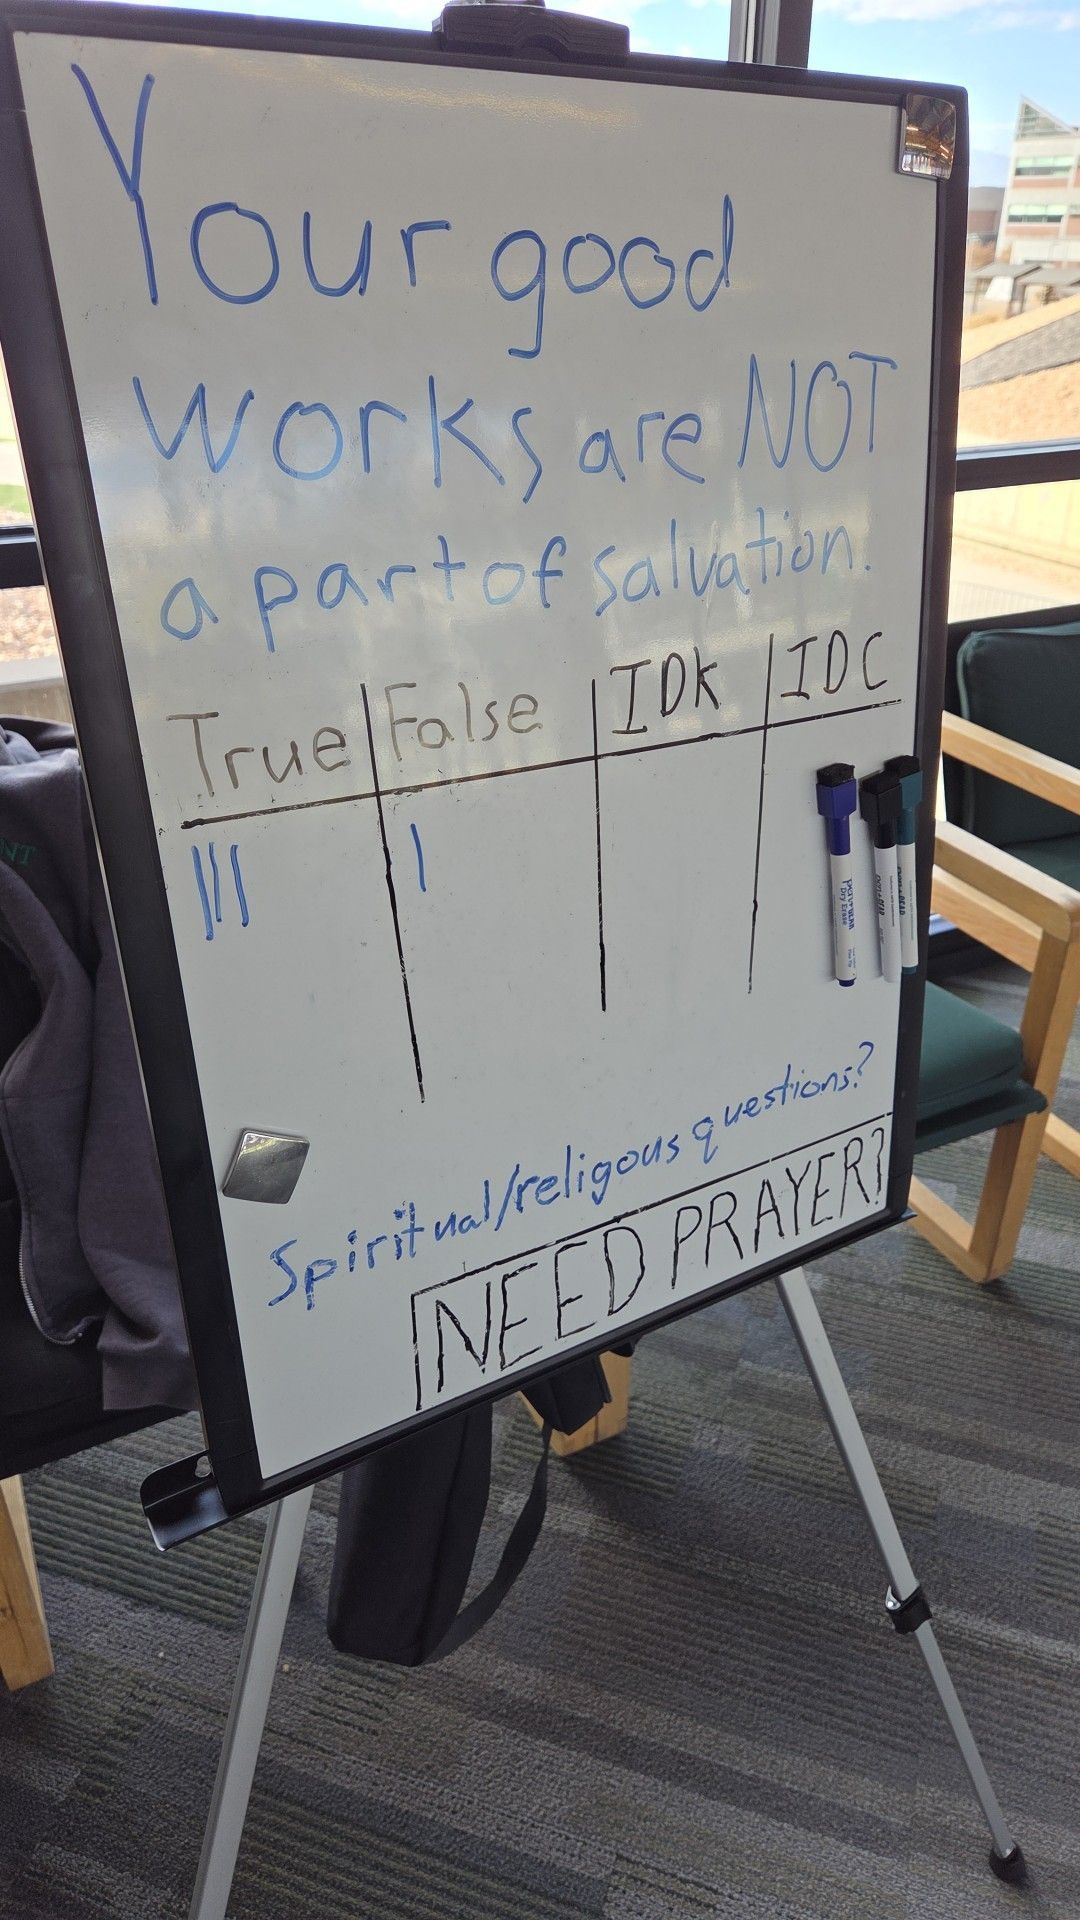 Your good
works are NOT
a part of salvation.
True False IDK IDC
||| |
Spiritual/religous questions?
NEED PRAYER?
NT